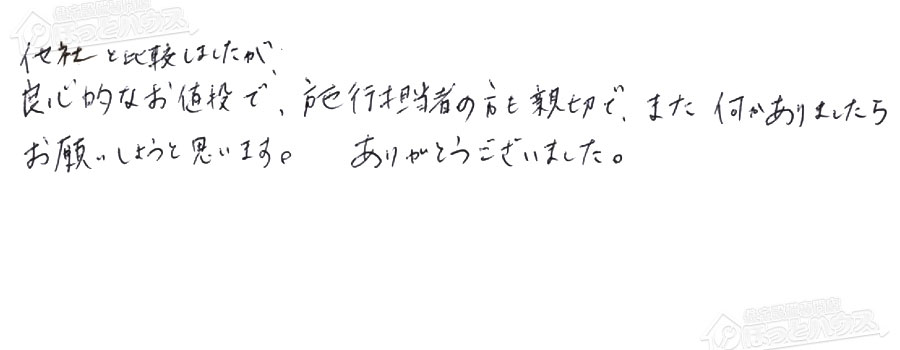 ほっとハウス
他社と比較しましたが、
良心的なお値段で、施行担当者の方も親切で、また何かありましたら
お願いしようと思います。 ありがとうございました。
ほっとハウス